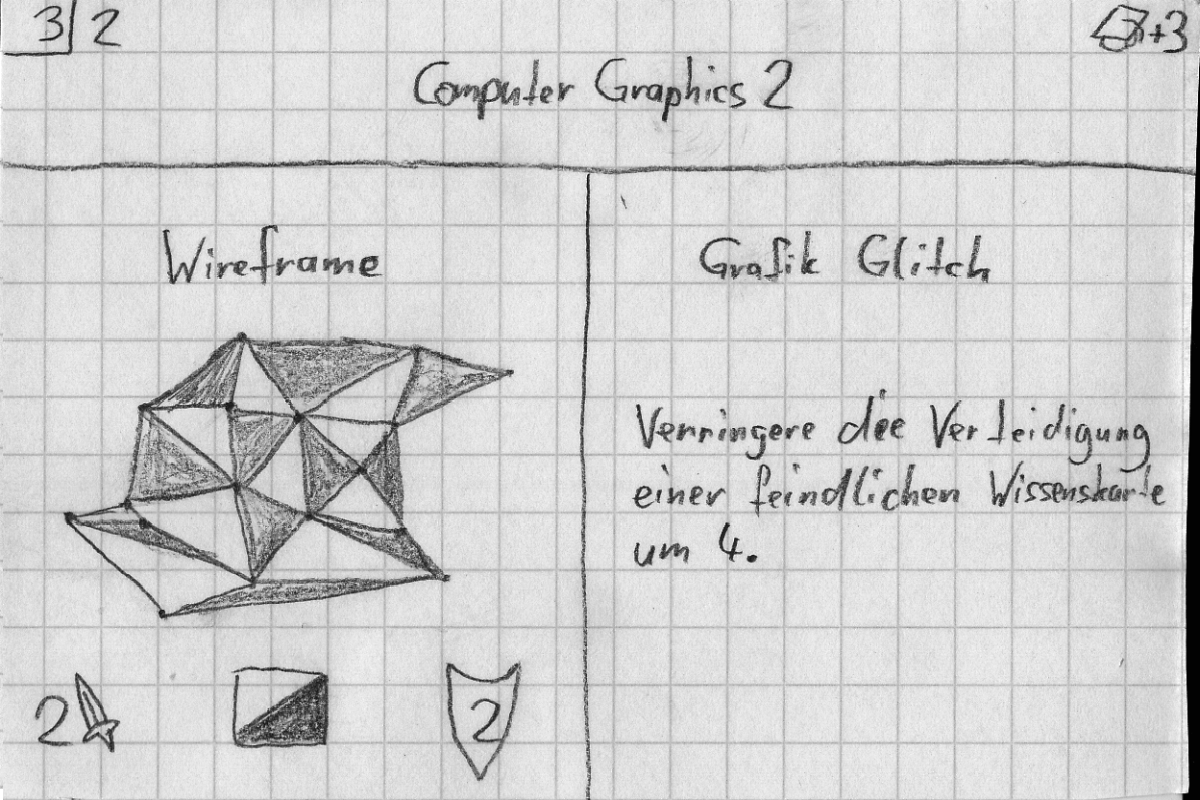 3 2
+3
Computer Graphics 2
Wireframe
Grafik Glitch
Verringere die Verteidigung
einer feindlichen Wissenskarte
um 4.
2
2